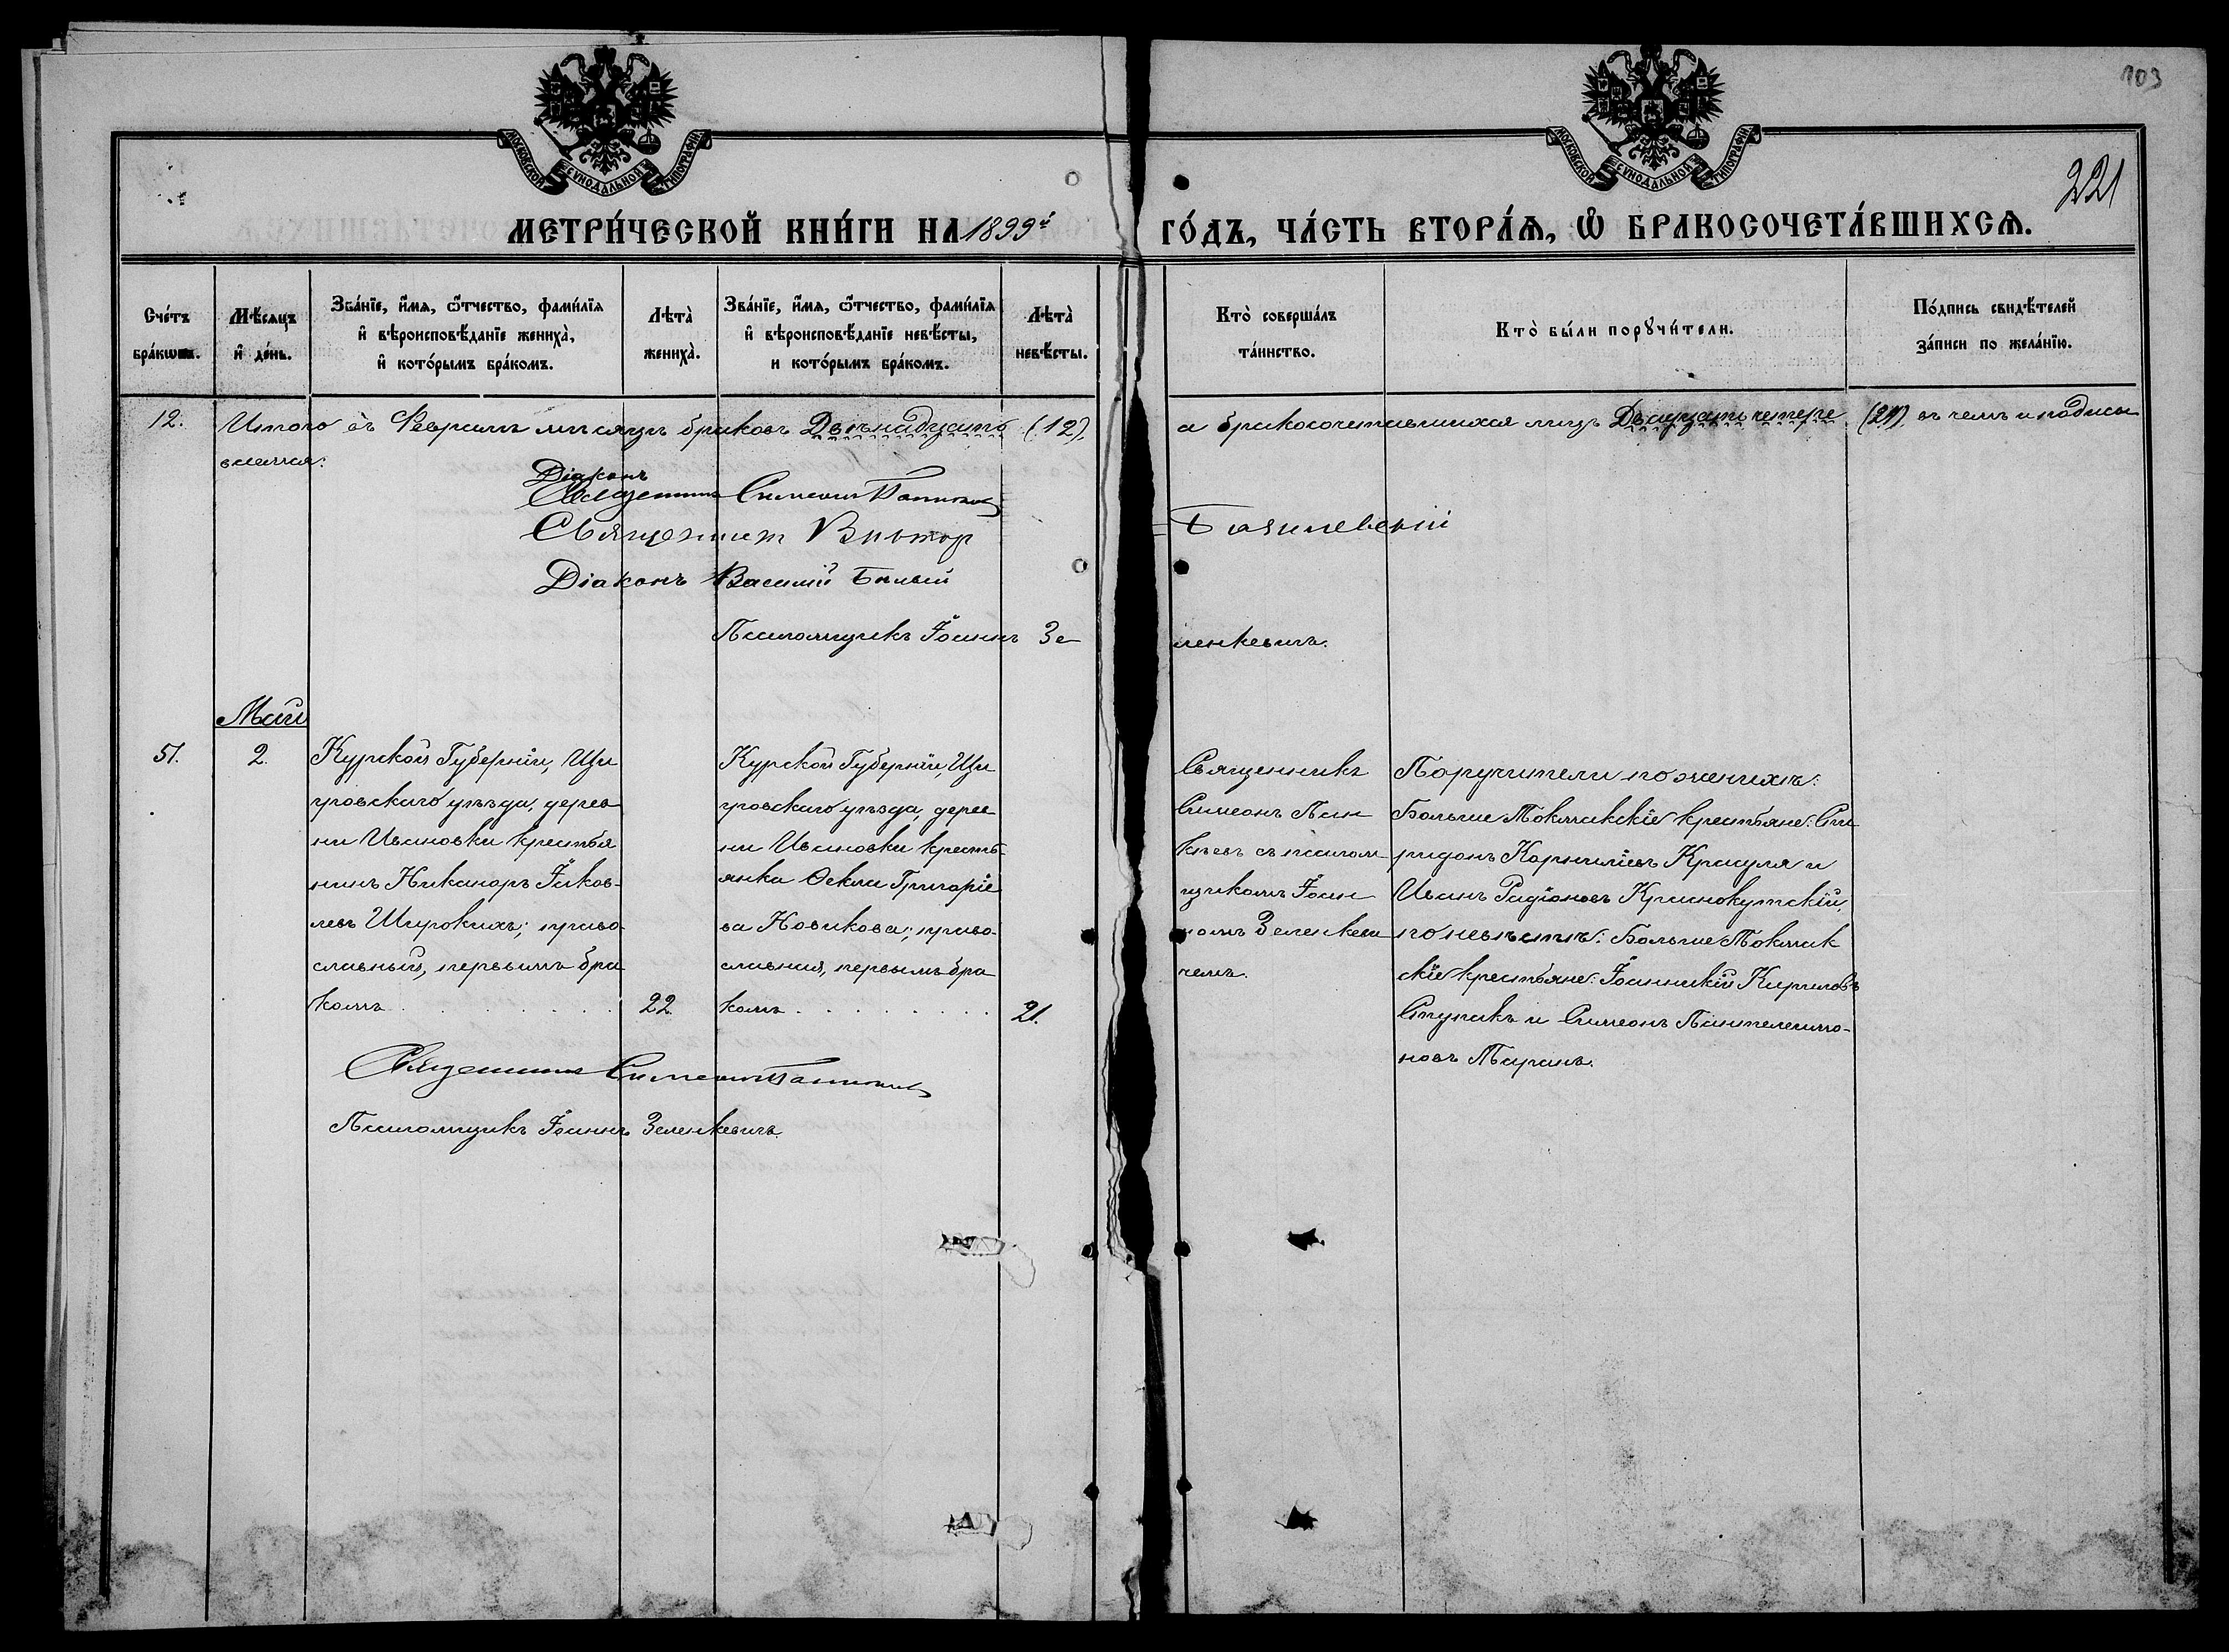 103
221
МОСКОВСКОЙ СѴНОДАЛЬНОЙ ТИПОГРАФІИ
МОСКОВСКОЙ СѴНОДАЛЬНОЙ ТИПОГРАФІИ
МЕТРИ́ЧЕСКОЙ КНИ́ГИ НА 1899й ГО́ДЪ, ЧА́СТЬ ВТОРА́Ѧ, Ѽ БРАКОСОЧЕТА́ВШИХСѦ.
Сче́тъ
бра́кшвъ.
Мѣ́сѧцъ
и҆ де́нь.
Зва́нїе, и҆́мѧ, ѻ҆́тчество, фами́лїѧ
и҆ вѣроисповѣ́данїе жениха̀,
и҆ кото́рымъ бра́комъ.
Лѣта̀
жениха̀.
Зва́нїе, и҆́мѧ, ѻ҆́тчество, фами́лїѧ
и҆ вѣроисповѣ́данїе невѣ́сты,
и кото́рымъ бра́комъ.
Лѣта̀
невѣ́сты.
Кто̀ соверша́лъ
та́инство.
Кто̀ бы́ли порꙋчи́тели.
По́дпись свидѣ́телей
за́писи по жела́нїю.
12. Итого въ Февралѣ мѣсяцѣ браковъ Двѣнадцать (12), а бракосочетавшихся лицъ Двадцать четыре (24) въ чемъ и подписы
ваемся:
Діаконъ
Священникъ Симеонъ
Священникъ Викторъ Базилевскій
Діаконъ Василій Бѣлый
Псаломщикъ Іоаннъ Зеленкевичъ.
Май
51.
2.
Курской Губерніи, Щи
гровскаго уѣзда, дерев
ни Ивановки крестья
нинъ Никаноръ Іаков-
левъ Широкихъ; право-
славный, первымъ бра
комъ . . . . . . .
22.
Курской Губерніи, Щи
гровскаго уѣзда, дерев
ни Ивановки кресть-
янка Ѳекла Григоріе
ва Новикова; право-
славная, первымъ бра
комъ . . . . . . . .
21.
Священникъ
Симеонъ Пан
кѣевъ съ псалом
щикомъ Іоан
номъ Зеленкеви
чемъ.
Поручители по женихѣ:
Больше Токмакскіе крестьяне: Спи
ридонъ Корниліевъ Красуля и
Иванъ Радіоновъ Краснокутскій,
по невѣстѣ: Больше Токмак
скіе крестьяне: Іоанникій Кириловъ
Ступакъ и Симеонъ Пантелеимо-
новъ
Священникъ Симеонъ
Псаломщикъ Іоаннъ Зеленкевичъ.